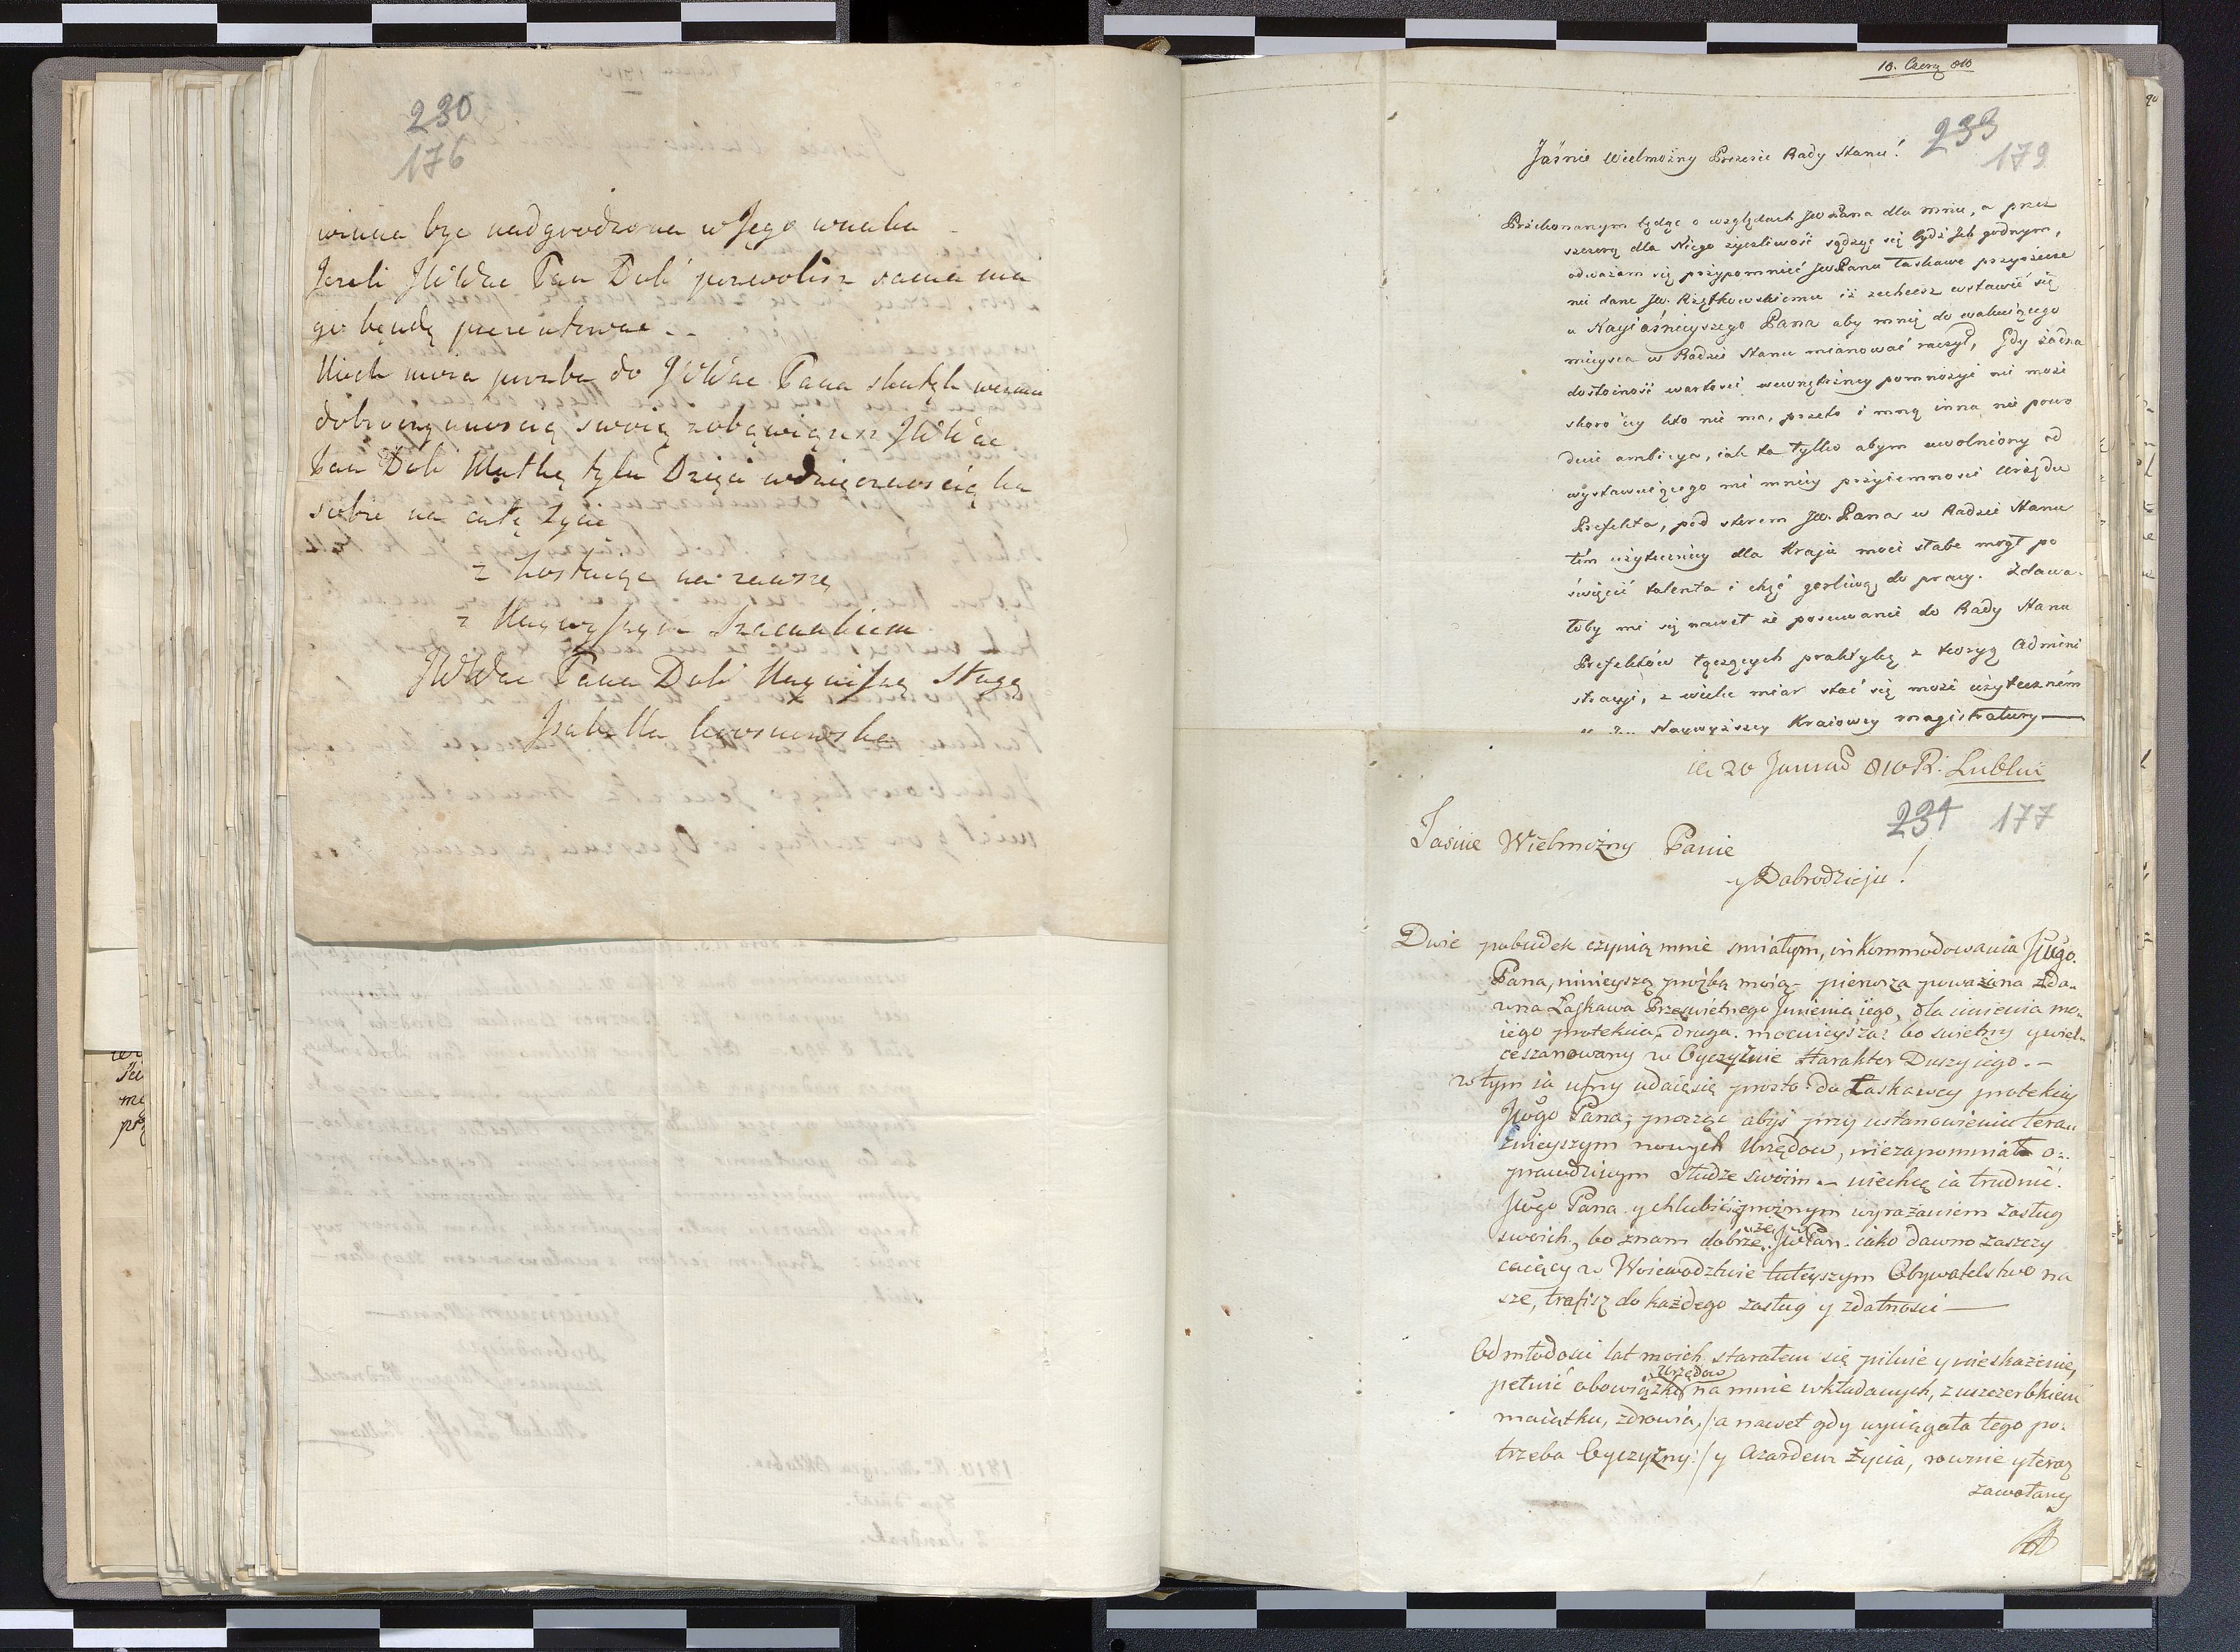 230
176
winna byc nadgrodzona w Jego wnuku
Jezeli JWWac Pan Dob pozwolisz sama ma
go będę prezentowac
Niech moia prozba do JWWac Pana skutek wezmi
dobroczynnoscią swoią zobąwiązesz JWWac
Pan Dob Matkę tylu Dzięci wdzięcznoscią ku
sobie na całę życie
z Zostaiąc na zawszę
z Naywyszym Szacunkiem
JWWac Pana Dob Nayniszą Sługą
Izabella
10. Czerw 810
233
179
Jaśnie Wielmożny Prezesie Rady Stanu!
Przekonanym będąc o względach JW Pana dla mnie, a przez
szczerą dla Niego życzliwość sądząc się bydź Jch godnym,
odważam się przypomnieć JW. Panu łaskawe przyrzecze
nie dane JW. Rządkowskiemu iż zechcesz wstawić się
u Nayiaśnieyszego Pana aby mnię do wakuiącego
mieysca w Radzie Stanu mianować raczył, Gdy żadna
dostoiność wartości wewnętrzney pomnożyć nie może
skoro iey kto nie ma, przeto i mną inna nie powo
duie ambicya, iak ta tylko abym uwolniony od
wystawuiącego mi mniey przyiemności Urzędu
Prefekta, pod sterem JW. Pana w Radzie Stanu
tém użyteczniey dla Kraju moie słabe mógł po
święcić talenta i chęć gorliwą do pracy. Zdawa-
łoby mi się nawet że posuwanie do Rady Stanu
Prefektów łączących praktykę z teoryą Admini
stracyi, z wielu miar stać się może użyteczném
Naywyższey Kraiowey magistratury —
20 Januar 810 R. Lublin
234 177
Jasnie Wielmożny Panie
y Dobrodzieju!
Dwie pobudek czynią mnie smiałym, inkommodowania JWgo.
Pana, ninieyszą proźbą moią – pierwsza poważna zda-
wna Łaskawa Prześwietnego Jmienia iego, dla imienia mo-
iego protekcia, Druga mocnieysza: bo swietny y wiel-
ce szanowany w Oyczyźnie Harakter Duszy iego. –
w tym ia ufny udaię się prosto do Łaskawey protekcij
JWgo Pana, prosząc abyś przy ustanowieniu tera-
źnieyszym nowych Urzędow, niezapomniał o-
prawdziwym słudze swoim – niechcę ia trudnić
JWgo Pana y chlubić się próżnym wyrażaniem zasług
swoich, bo znam dobrze że JWPan iako dawno zaszczy
caiący w Woiewodztwie tuteyszym Obywatelstwo na
sze, trafisz do każdego zasług y zdatności —
Od młodosci lat moich starałem się pilnie y nieskażenie,
pełnić obowiązki Urzędow na mnie wkładanych, z uszczerbkiem
maiątku, zdrowia, /:a nawet gdy wyciągała tego po-
trzeba Oyczyzny:/ y azardem życia, rownie y teraz
zawołany